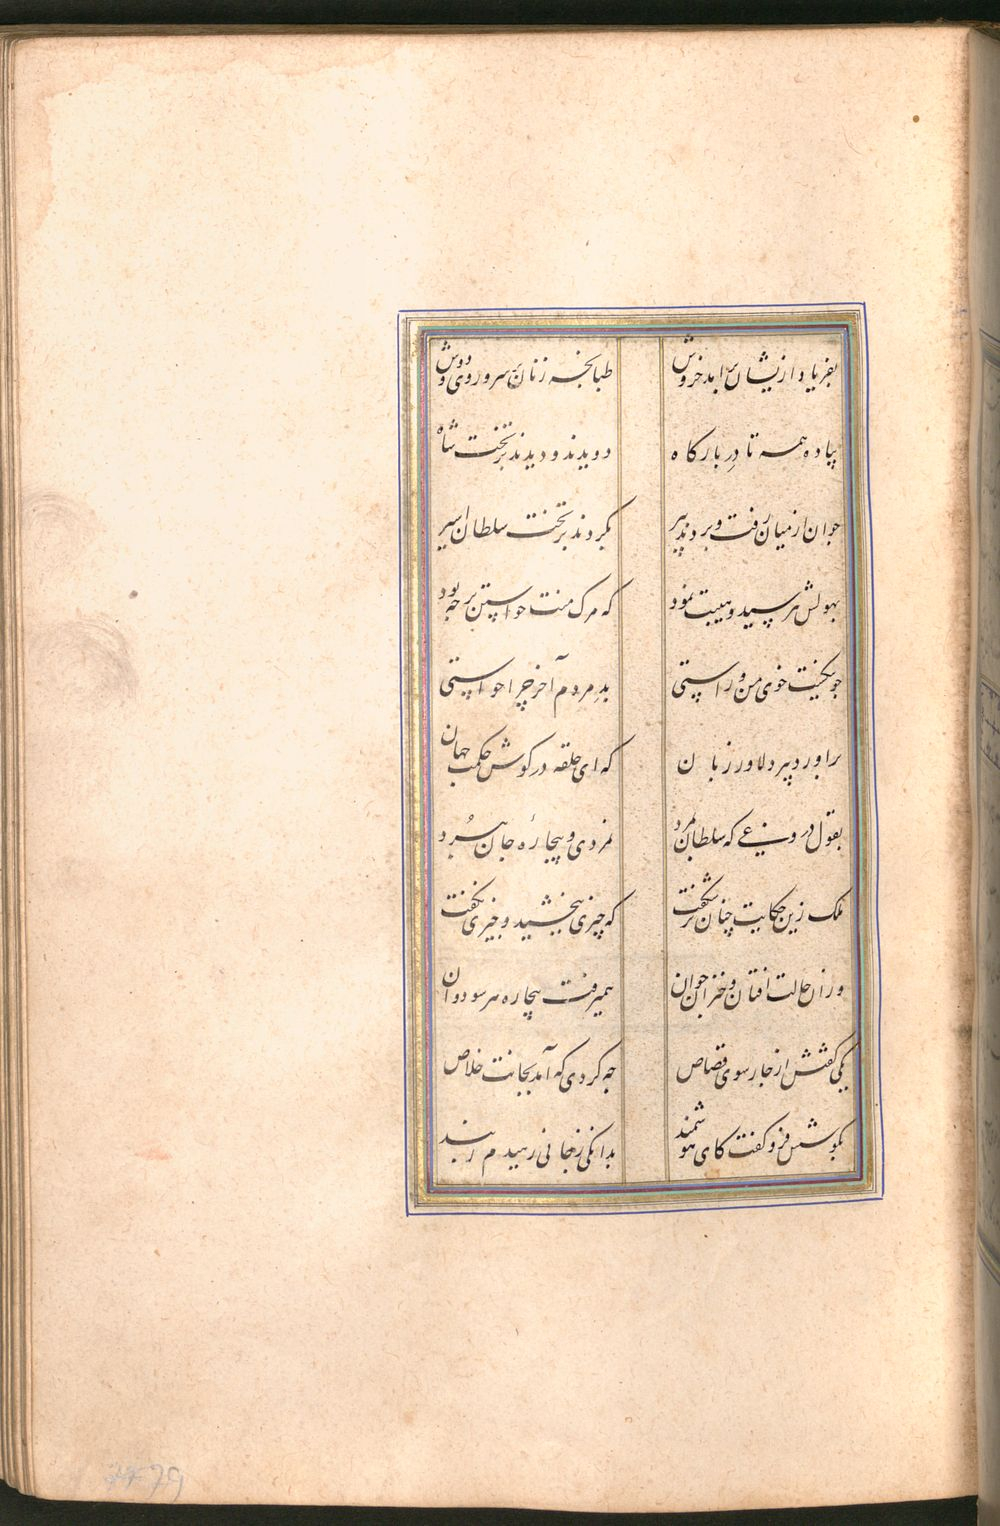 بفریاد ازیشان برآمد خروش طبانجه زنان بر سر و روی و دوش
پیاده همه تا در بارکاه دویدند و دیدند بر تخت شاه
جوان از میان رفت و بردند پیر بکردند بر تخت سلطان اسیر
بهولش بپرسید و هیبت نمود که مرک منت خواستن بر چه بود
جو نیکست خوی من و راستی بد مردم آخر چرا خواستی
براورد پیر دلاور زبان که ای حلقه در کوش حکمت جهان
بقول دروغی که سلطان بمرد نمردی و بیچارهٔ جان ببرد
ملک زین حکایت چنان برشکفت که چیزی ببخشید و چیزی نکفت
وزان حالت افتان و خیزان جوان همیرفت بیچاره هر سو دوان
یکی کفتش از چارسوی قصاص چه کردی که آمد بجانت خلاص
بکوشش فرو کفت کای هوشمند بدانکی ز جانی رهیدم ز بند